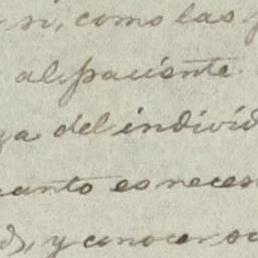 si, como las
al paciente
del individ
uanto es neces
y conocer su